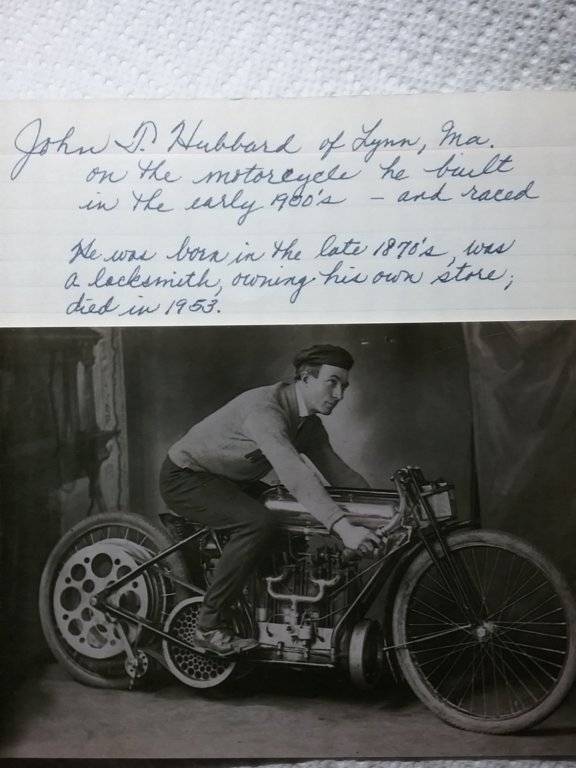 John T. Hubbard of Lynn, Ma.
on the motorcycle he built
in the early 1900's – and raced
He was born in the late 1870's, was
a locksmith, owning his own store;
died in 1953.